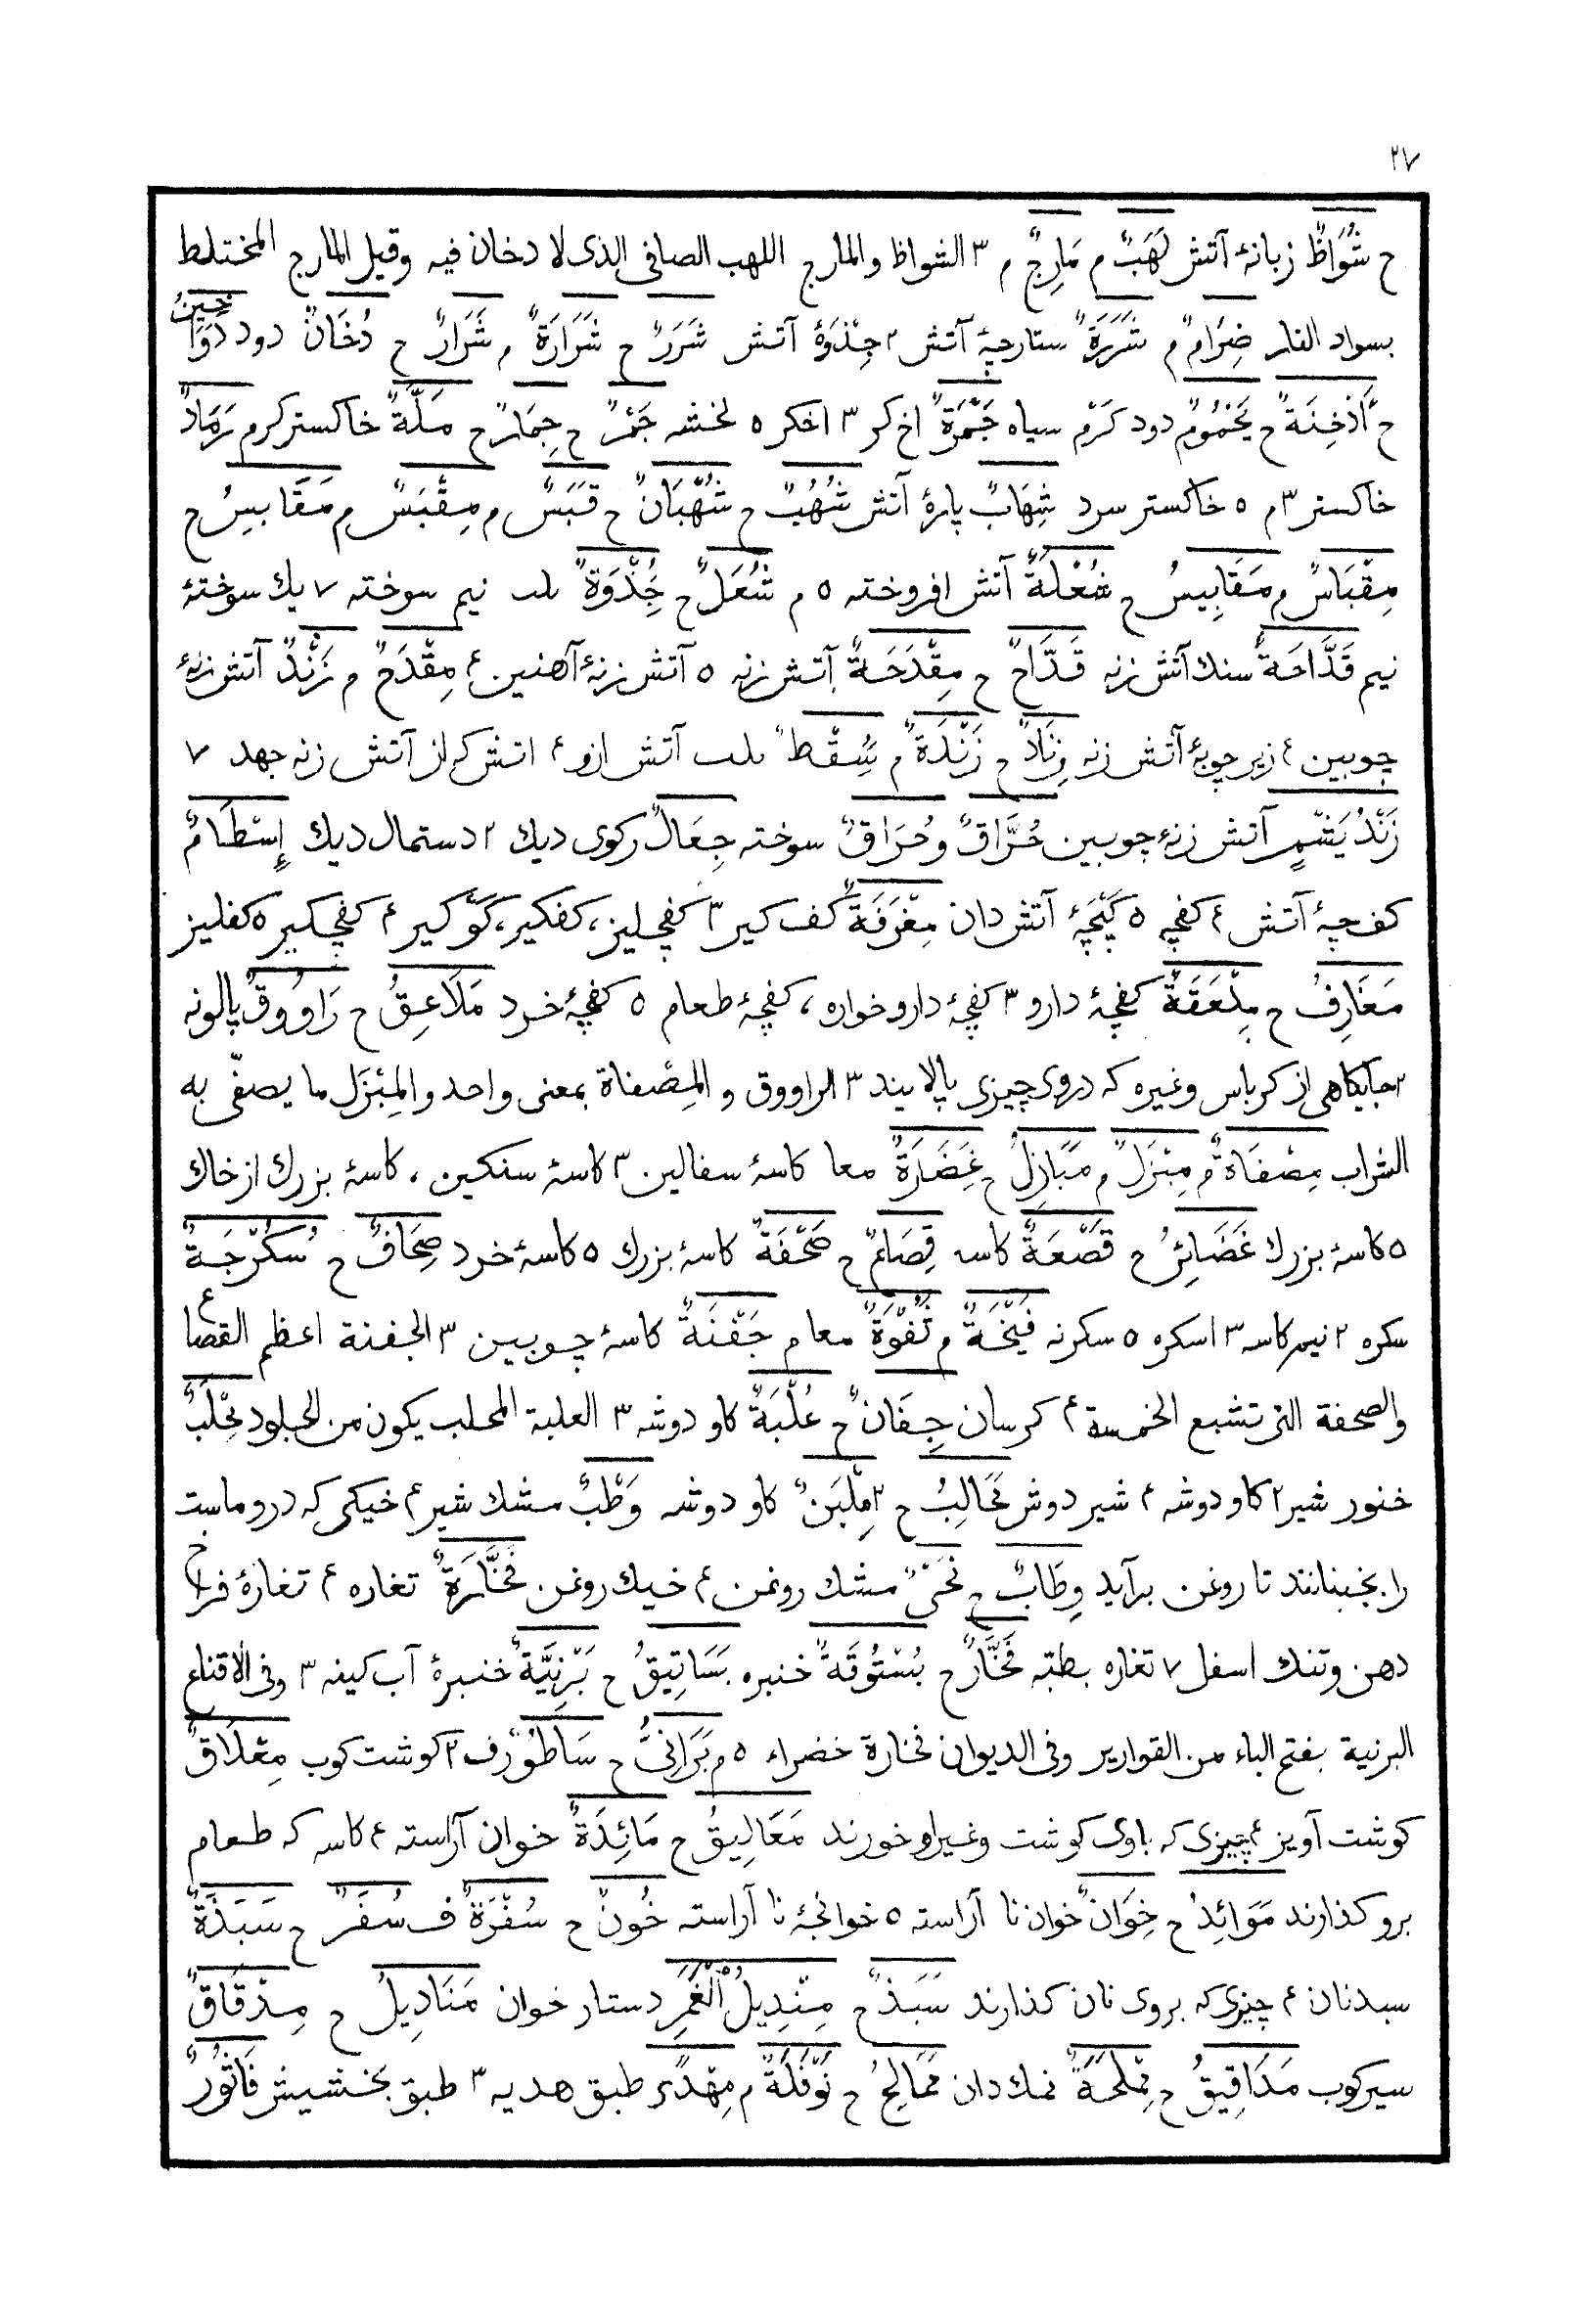 ٢٧
ح شُوَاظٌ زبانهٔ آتش لَهَبٌ م مَارِجٌ م ٣ الشواظ والمارج اللهب الصافی الذی لا دخان فیه وقیل المارج المختلط
بسواد النار ضِرَامٌ م شَرَرَةٌ ستارچهٔ آتش ٢ جِذْوَهٔ آتش شَرَرٌ ح شَرَارَةٌ م شَرَارٌ ح دُخَانٌ دود دَوَاخِينُ
ح أَدْخِنَةٌ ح يَحْمُومٌ دود گرم سیاه جَمْرَةٌ اخ کر ٣ اخکر ٥ لخشه جَمْرٌ ح جِمَارٌ ح مَلَّةٌ خاکستر کرم رَمَادٌ
خاکستر ٣ م ٥ خاکستر سرد شِهَابٌ پارهٔ آتش شُهُبٌ ح شُهْبَانٌ ح قَبَسٌ م مِقْبَسٌ م مَقَابِسُ ح
مِقْبَاسٌ م مَقَابِيسُ ح شُعْلَةٌ آتش افروخته ٥ م شُعَلٌ ح جُِذْوَةٌ ىلىـ نیم سوخته ٧ یك سوختهٔ
نیم قَدَّاحَةٌ سنك آتش زنه قَدَّاحٌ ح مِقْدَحَةٌ آتش زنه ٥ آتش زنهٔ آهنین ۴ مِقْدَحٌ م زَنْدٌ آتش زنهٔ
چوبین ۴ زیر چوبهٔ آتش زنه زِنَادٌ ح زَنْدَةٌ م سُِقْطٌ ىلىـ آتش ازو ۴ اتش که از آتش زنه جهد ٧
زَنْدُ يَشْمٍ آتش زنهٔ چوبین حُرَّاقٌ وحُرَاقٌ سوخته جِعَالٌ رکوی دیك ٢ دستمال دیك إِسْطَامٌ
کف چهٔ آتش ۴ کفچه ٥ کَپْچَهٔ آتش دان مِغْرَفَةٌ کف کیر ٣ کفچلیز، کفکیر، کَوْکیر ۴ کفچکیر ٥ کفلیز
مَغَارِفُ ح مِلْعَقَةٌ کفچهٔ دارو ٣ کفچهٔ دارو خواره، کفچهٔ طعام ٥ کفچهٔ خرد مَلَاعِقُ ح رَاوُوقٌ پالونه
٢ جایکاهی از کرباس وغیره که در وی چیزی پالایند ٣ الراووق والمِصْفاة بمعنی واحد والمِبْزَل ما یصفّی به
الشراب مِصْفَاةٌ م مِبْزَلٌ م مَبَازِلُ ح غَضَارَةٌ معا کاسهٔ سفالین ٣ کاسهٔ سنکین، کاسهٔ بزرك از خاك
٥ کاسهٔ بزرك غَضَائِرُ ح قَصْعَةٌ کاسه قِصَاعٌ ح صَحْفَةٌ کاسهٔ بزرك ٥ کاسهٔ خرد صِحَافٌ ح سُكُرَّجَةٌ
سکره ٢ نیم کاسه ٣ اسکره ٥ سکرنه فَيْخَةٌ م ثُقْوَةٌ معا م جَفْنَةٌ کاسهٔ چوبین ٣ الجفنة اعظم القصاع
والصحفة التی تشبع الخمسة ۴ کرسان جِفَانٌ ح عُلْبَةٌ کاو دوشه ٣ العلبة المحلب یکون من الجلود مِحْلَبٌ
خنور شیر ٢ کاو دوشه ۴ شیر دوش مَحَالِبُ ح مِلْبَنٌ ٢ کاو دوشه وَطْبٌ مشك شیر ۴ خیکی که درو ماست
را بجنبانند تا روغن برآید وِطَابٌ ح نِحْیٌ مشك روغن ۴ خیك روغن فَخَّارَةٌ تغاره ۴ تغارهٔ فراخ
دهن وتنك اسفل ٧ تغاره بطبه فَخَّارٌ ح بُسْتُوقَةٌ خنبره بَسَاتِيقُ ح بَرْنِيَّةٌ خنبرهٔ آب کینه ٣ وفی الاقناع
البرنیة بفتح الباء من القواریر وفی الدیوان فخارة خضراء ٥ م بَرَانِیُّ ح سَاطُورٌ ف ٢ کوشت کوب مِعْلَاقٌ
کوشت آویز ۴ چیزی که باوی کوشت وغیراو خورند مَعَالِيقُ ح مَائِدَةٌ خوان آراسته ۴ کاسه که طعام
برو کذارند مَوَائِدُ ح خِوَانٌ خوان نا آراسته ٥ خوانچهٔ نا آراسته خُونٌ ح سُفْرَةٌ ف سُفَرٌ ح سَبَذَةٌ
سبدنان ۴ چیزی که بروی نان کذارند سَبَذٌ ح مِنْدِيلُ الْغَمَرِ دستار خوان مَنَادِيلُ ح مِدْقَاقٌ
سیرکوب مَدَاقِيقُ ح مِمْلَحَةٌ نمك دان مَمَالِحُ ح نَوْفَلَةٌ م مِهْدًى طبق هدیه ٣ طبق بخشیش فَاثُورٌ